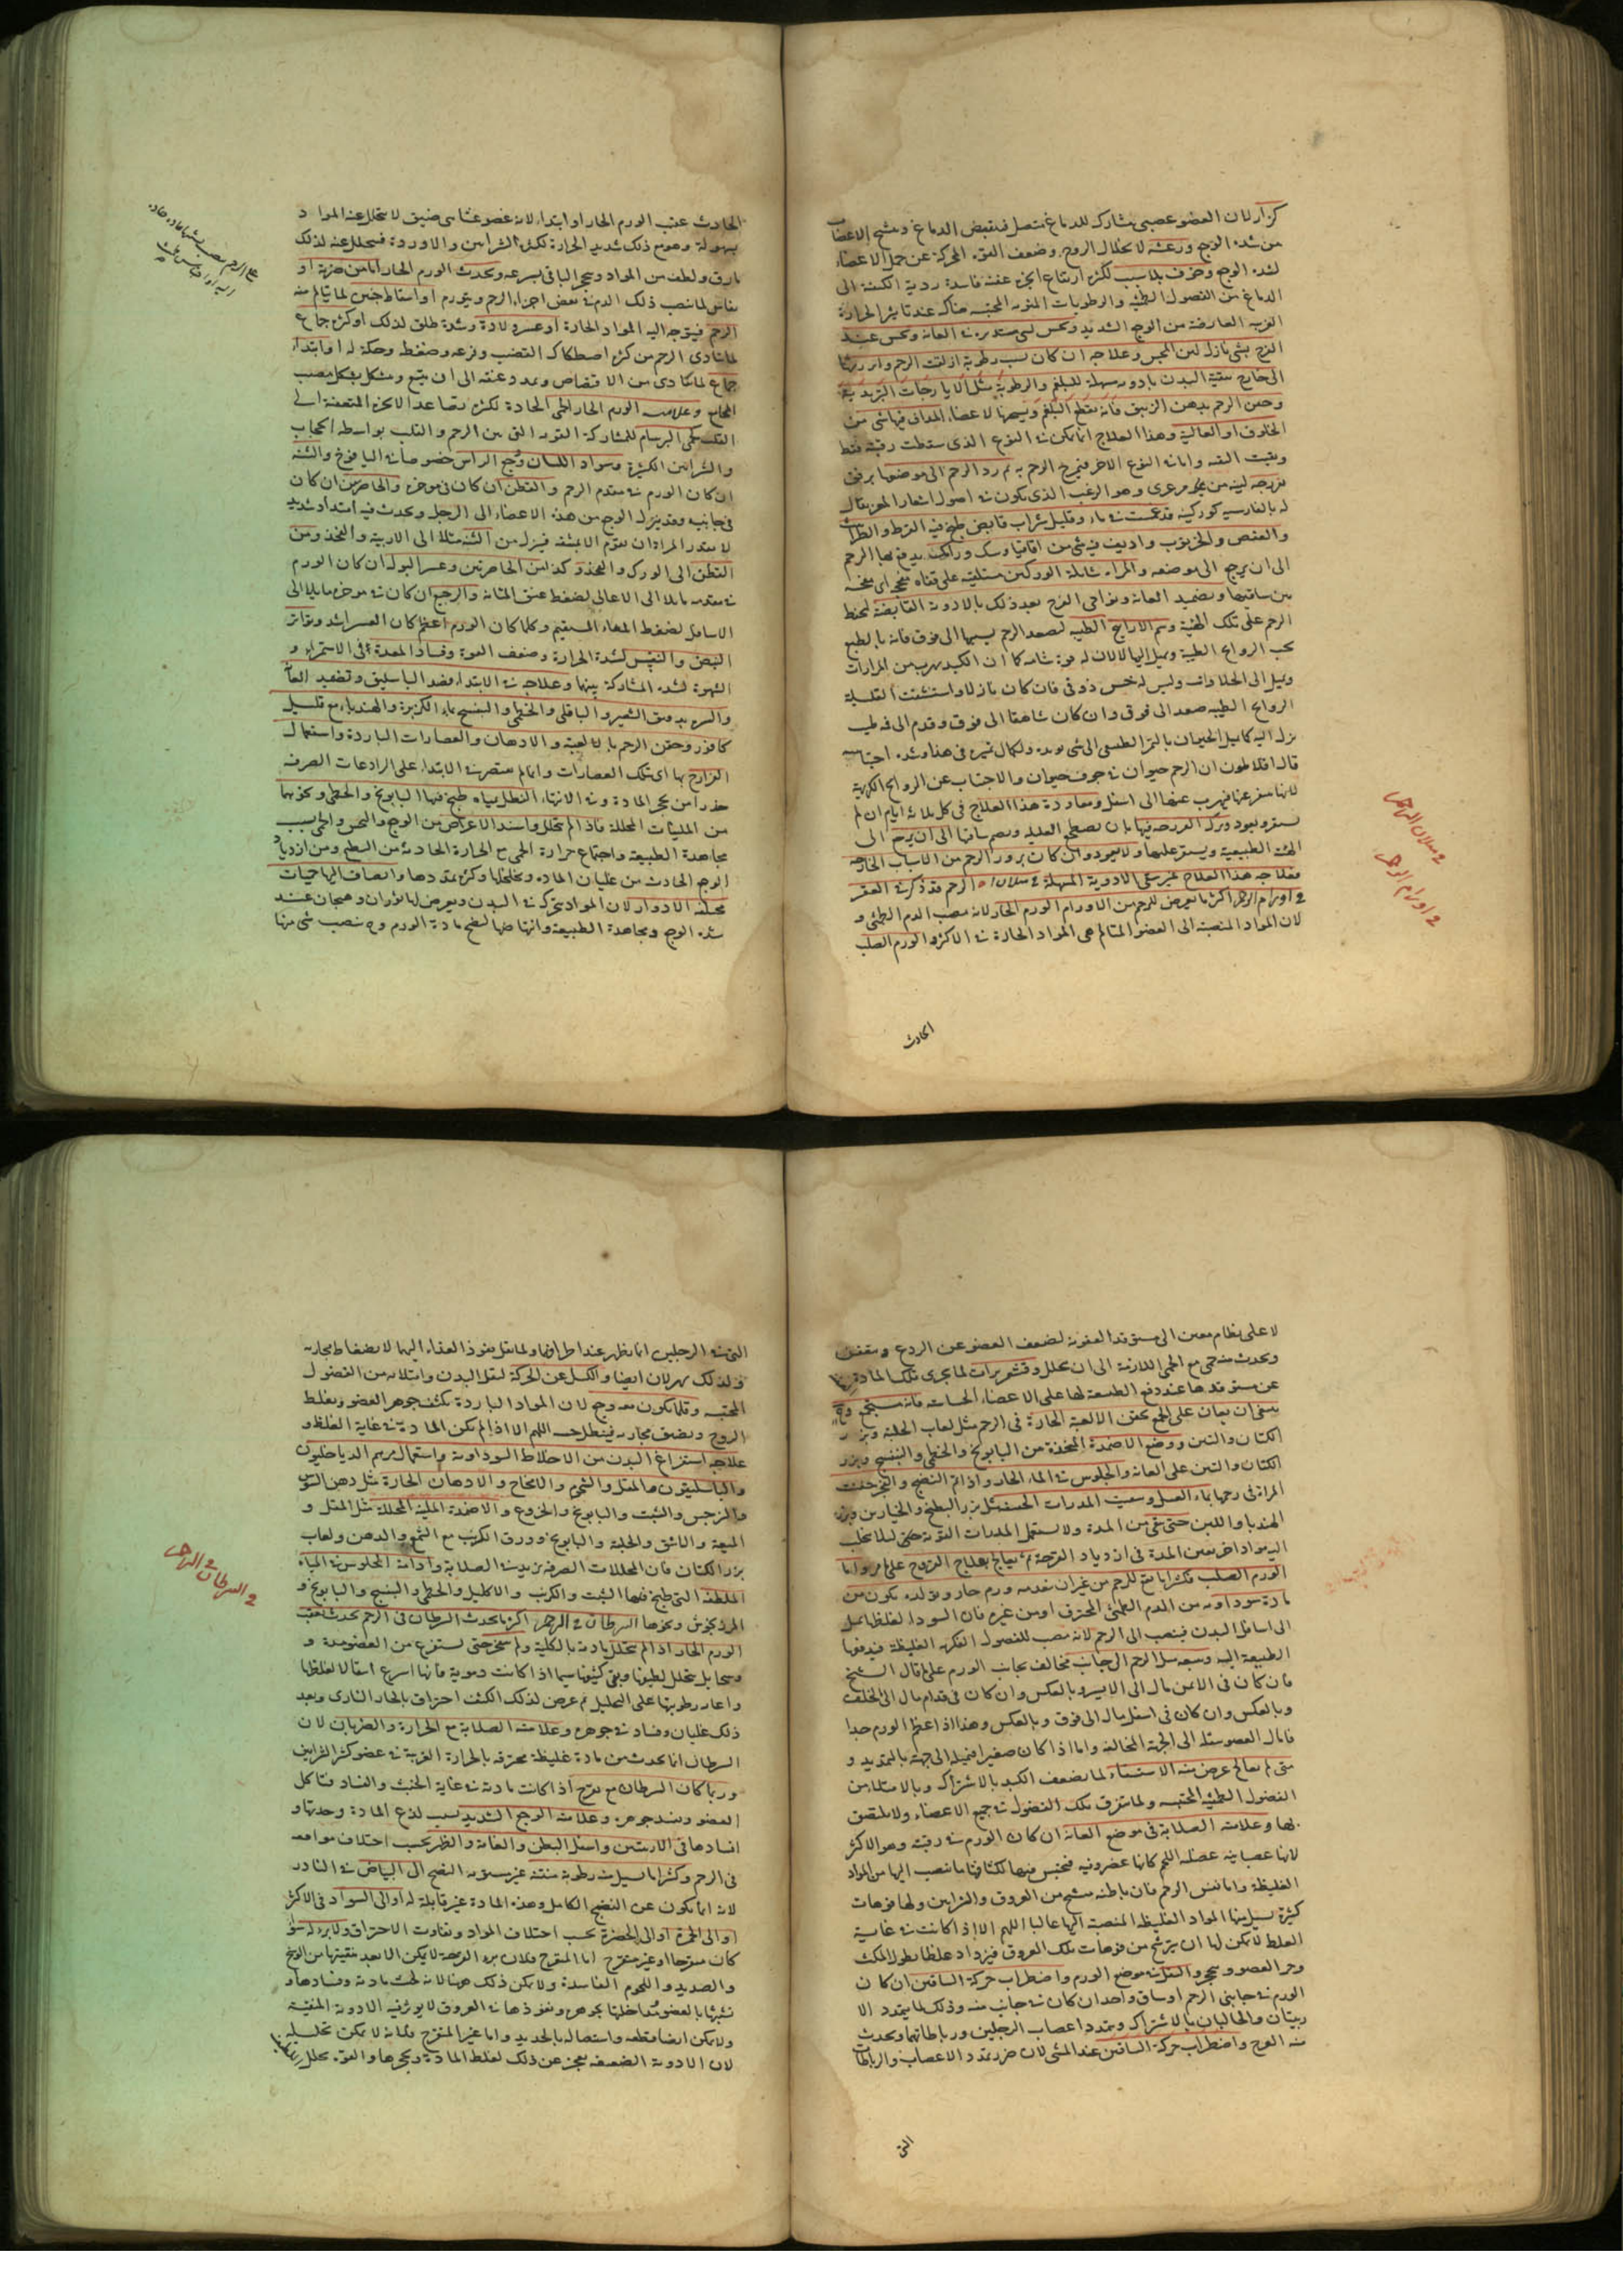 كزاز لان العضو عصبى مشارك للدماغ متصل فينقبض الدماغ و تشنج الاعصاب
من شدة الوجع ورعشة لانحلال الروح وضعف القوة المحركة عن حمل الاعضاء
لشدة الوجع وخوف بلا سبب لكثرة ارتفاع ابخرة عفنة فاسدة ردية الكيفية الى
الدماغ من الفضول الطمثية والرطوبات المنوية المحتبسة هناك عند تاثير الحرارة
الغريبة العارضة من الوجع الشديد ويحس لشى مستدير فى العانة ويحس عند
الفرج بشى نازل لين المجس وعلاجه ان كان بسبب رطوبة ازلقت الرحم وابرزتها
الى خارج تنقية البدن بادوية مسهلة للبلغم والرطوبة مثل الايارجات التربدية
وحقن الرحم بدهن الزنبق فانه يقطع البلغم ويسخن الاعضاء المداف فيها شى من
الخلوق او الغالية وهذا العلاج انما يمكن فى النوع الذى سقطت رقبته فقط
وبقيت الثقبة واما فى النوع الاخر فيمرخ الرحم به ثم رد الرحم الى موضعها برفق
بفرزجة لينة من مرعزى وهو الزغب الذى يكون فى اصول اشعار المعز يقال
له بالفارسية كورك قد غمست فى ماء وقليل شراب قابض طبخ فيه القرظ والطراثيث
والعفص والخرنوب واديف فيه شى من اقاقيا وسك ورامك يدفع بها الرحم
الى ان يرجع الى موضعه والمراة شايلة الوركين مستلقية على قفاه
بين ساقيها وتضميد العانة ونواحى الفرج بعد ذلك بالادوية القابضة ليحفظ
الرحم على تلك الهيئة وشم الاراييح الطيبة ليصعد الرحم بسببها الى فوق فانه بالطبع
يحب الروايح الطيبة ويميل اليها لا لان له قوة شامة كما ان الكبد يهرب من المرارات
ويميل الى الحلاوات وليس له حس ذوقى فان كان نازلا واستنشقت العليلة
الروايح الطيبة صعد الى فوق وان كان شاهقا الى فوق وقدم الى
نزل اليه كما يميل الحيوان بالشم الطبيعى الى شى
قال افلاطون ان الرحم حيوان فى جوف حيوان والاجتناب عن الروايح الكريهة
لانها تنفر عنها فيهرب عنها الى اسفل ومعاودة هذا العلاج فى كل ثلاثة ايام ان لم
يستقر ويعود وترك الفرزجة فيها بان تضطجع العليلة ويضم ساقها الى ان يرجع الى
الهيئة الطبيعية ويستقر عليها ولا يعود وان كان بروز الرحم من الاسباب الخارجة
فعلاجه هذا العلاج غير سقى الادوية المسهلة فى سيلان الرحم قد ذكر فى العقر
فى اورام الرحم اكثر ما يعرض للرحم من الاورام الورم الحار لانه مصب الدم الطمثى و
لان المواد المنصبة الى العضو المتالم هى المواد الحارة فى الاكثر والورم الصلب
فى سيلان الرحم
فى اورام الرحم
الحادث
الحادث عقيب الورم الحار او ابتداء لانه عضو غشائى ضيق لا يتحلل عنه المواد
بسهولة وهو مع ذلك شديد الحرارة لكثرة الشرايين والاوردة فيتحلل عنه لذلك
مارق ولطف من المواد ويتحجر الباقى بسرعة ويحدث الورم الحار اما من ضربة او
نفاس لما ينصب ذلك الدم فى بعض اجزاء الرحم ويتورم او اسقاط جنين لما يتالم منه
الرحم فيتوجه اليه المواد الحارة او عسر ولادة وشدة طلق لذلك او كثرة جماع
لما يتاذى الرحم من كثرة اصطكاك القضيب وقرعه وضغطه وحكه له او ابتداء
جماع لما يتاذى من الافتضاض وتمدد عنقه الى ان يتسع ويتشكل بشكل قضيب
المجامع وعلامة الورم الحار الحمى الحادة لكثرة تصاعد الابخرة المتعفنة الى
القلب كحمى البرسام للمشاركة القوية التى بين الرحم والقلب بواسطة الحجاب
والشرايين الكثيرة وسواد اللسان ووجع الراس خصوصا فى اليافوخ والثنة
ان كان الورم فى مقدم الرحم والقطن ان كان فى موخره والخاصرتين ان كان
فى جانبيه وقد ينزل الوجع من هذه الاعضاء الى الرجل ويحدث فيه امتداد شديد
لا يقدر المراة ان تقوم الا بمشقة فينزل من الثنة مثلا الى الاربية والفخذ ومن
القطن الى الورك والفخذ وكذا من الخاصرتين وعسر البول ان كان الورم
فى مقدمه مايلا الى الاعالى لضغط عنق المثانة والرجيع ان كان فى موخره مايلا الى
الاسافل لضغط المعاء المستقيم وكلما كان الورم اعظم كان العسر اشد وتواتر
النبض والنفس لشدة الحرارة وضعف القوة وفساد المعدة فى الاستمراء و
الشهوة لشدة المشاركة بينها وعلاجه فى الابتداء فصد الباسليق وتضميد العانة
والسرة بدقيق الشعير والباقلى والخطمى والبنفسج بماء الكزبرة والهندباء مع قليل
كافور وحقن الرحم بالالعبة والادهان والعصارات الباردة واستعمال
الفرازج بها اى تلك العصارات وانما لم يقتصر فى الابتداء على الرادعات الصرفة
حذرا من تحجر المادة وفى الانتهاء النطل بمياه طبخ فيها البابونج والخطمى ونحوهما
من المليات المحللة فاذا لم يتحلل واشتد الاعراض من الوجع والنخس والحمى بسبب
مجاهدة الطبيعة واجتماع حرارة الحمى مع الحرارة الحادثة من الطبخ ومن ازدياد
الوجع الحادث من غليان المادة وتخلخلها وكثرة تمددها وانضاف اليها حميات
مختلفة الادوار لان المواد تتحرك فى البدن ويعرض لها ثوران وهيجان عند
شدة الوجع ومجاهدة الطبيعة وانتهاضها لنضج مادة الورم وح ينصب شى منها
لا على نظام معين الى مستوقد العفونة لضعف العضو عن الردع و يتعفن
ويحدث منه حمى مع الحمى اللازمة الى ان يتحلل وقشعريرات لما يجرى تلك المادة
عن مستوقدها عند دفع الطبيعة لها على الاعضاء الحساسة فانه سيجمع وح
ينبغى ان يعان على الجمع بحقن الالعبة الحارة فى الرحم مثل لعاب الحلبة وبزر
الكتان والتين ووضع الاضمدة المتخذة من البابونج والخطمى والبنفسج وبزر
الكتان والتين على العانة والجلوس فى الماء الحار واذا تم النضج وانفجر حقنت
المراة فى رحمها بماء العسل وسقيت المدرات الخفيفة مثل بزر البطيخ والخيارين وبزر
الهندباء واللبن حتى تنقى من المدة ولا يستعمل المدرات القوية حتى لئلا يجلب
اليه مواد اخر يعين المدة فى ازدياد القرحة ثم يعالج بعلاج القروح على ما مر واما
الورم الصلب فكثيرا ما يقع للرحم من غير ان يتقدمه ورم حار وتولده يكون من
مادة سوداوية من الدم الطمثى المحترق او من غيره فان السوداء لغلظها تميل
الى اسافل البدن فينصب الى الرحم لانه مصب للفضول العكرة الغليظة فيدفعها
الطبيعة اليه ومعه ميل الرحم الى جانب مخالف لجانب الورم على ما قال الشيخ
فان كان فى الايمن مال الى الايسر وبالعكس وان كان فى قدام مال الى الخلف
وبالعكس وان كان فى اسفل مال الى فوق وبالعكس وهذا اذا عظم الورم جدا
فامال العضو بثقله الى الجهة المخالفة واما اذا كان صغيرا فيميله الى جهته بالتمديد و
متى لم يعالج عرض منه الاستسقاء لما يضعف الكبد بالاشتراك وبالامتلاء من
الفضول الطمثية المحتبسة ولما يتفرق تلك الفضول فى جميع الاعضاء ولا يلتصق
بها وعلامته الصلابة فى موضع العانة ان كان الورم فى رقبته وهو الاكثر
لانها عصبانية عضلة اللحم كانها غضروفية فيحتبس فيها لكثافتها ما ينصب اليها من المواد
الغليظة واما نفس الرحم فان باطنه منتسج من العروق والشرايين ولها فوهات
كثيرة يسيل منها المواد الغليظة المنصبة اليها غالبا اللهم الا اذا كانت فى غاية
الغلظ لا يمكن لها ان يترشح من فوهات تلك العروق فيزداد غلظا بطول المكث
وحر العضو ويتحجر والثقل فى موضع الورم واضطراب حركة الساقين ان كان
الورم فى جانبى الرحم او ساق واحد ان كان فى جانب منه وذلك لما يتمدد الا
ربيتان والحالبان بالاشتراك ويتمدد اعصاب الرجلين ورباطاتهما ويحدث
منه العرج واضطراب حركة الساقين عند المشى لان ضرر تمدد الاعصاب والرباطات
التى
التى فى الرجلين انما يظهر عند اطرافها ولما يقل نفوذ الغذاء اليها لانضغاط مجاريه
فلذلك يهزلان ايضا والكسل عن الحركة لثقل البدن وامتلائه من الفضول
المحتبسة وقلما يكون معه وجع لان المواد الباردة يكثف جوهر العضو ويغلظ
الروح ويضيق مجاريه فيبطل حسه اللهم الا اذا لم يكن المادة فى غاية الغلظ و
علاجه استفراغ البدن من الاخلاط السوداوية واستعمال مرهم الدياخليون
والباسليقون والمقل والشحوم والامخاخ والادهان الحارة مثل دهن السوسن
والنرجس والشبت والبابونج والخروع والاضمدة الملينة المحللة مثل المقل و
الميعة والاشق والحلبة والبابونج وورق الكرنب مع الشحوم والدهن ولعاب
بزر الكتان فان المحللات الصرفة يزيد فى الصلابة وادامة الجلوس فى المياه
الملطفة التى طبخ فيها الشبت والكرنب والاكليل والخطمى والبنفسج والبابونج و
المرزنجوش ونحوها السرطان فى الرحم اكثر ما يحدث السرطان فى الرحم يحدث عقيب
الورم الحار اذا لم يتحلل مادته بالكلية ولم ينضج حتى يستفرغ من العضو مدة و
قيحا بل يتحلل لطيفها وبقى كثيفها سيما اذا كانت دموية فانها اسرع انتقالا لغلظها
واعارة رطوبتها على التحليل ثم عرض لذلك الكثيف احتراق بالحار النارى وبعد
ذلك غليان وفساد فى جوهره وعلامته الصلابة مع الحرارة والضربان لان
السرطان انما يحدث من مادة غليظة محترقة بالحرارة الغريبة فى عضو كثير الشرايين
وربما كان السرطان مع تقرح اذا كانت مادته فى غاية الخبث والفساد فتاكل
العضو وتفسد جوهره وعلامته الوجع الشديد بسبب لذع المادة وحدتها و
افسادها فى الاربيتين واسفل البطن والعانة والظهر بحسب اختلاف مواضعه
فى الرحم وكثيرا ما يسيل منه رطوبة منتنة غير مستوية النضج الى البياض فى النادر
لانه انما يكون عن النضج الكامل وهذه المادة غير قابلة له او الى السواد فى الاكثر
او الى الحمرة او الى الخضرة بحسب اختلاف المواد وتفاوت الاحتراق ولا برء له سواء
كان متقرحا او غير متقرح اما المتقرح فلان برء القرحة لا يمكن الا بعد تنقيتها من الوسخ
والصديد واللحوم الفاسدة ولا يمكن ذلك ههنا لانه لخبث مادته وفسادها و
تشبثها بالعضو ومداخلتها بجوهره ونفوذها فى العروق لا يوثر فيه الادوية المنقية
ولا يمكن ايضا قطعه واستيصاله بالحديد واما غير المتقرح فلانه لا يمكن تحليله
لان الادوية الضعيفة يعجز عن ذلك لغلظ المادة وتحجرها والقوية يحلل
فى السرطان فى الرحم